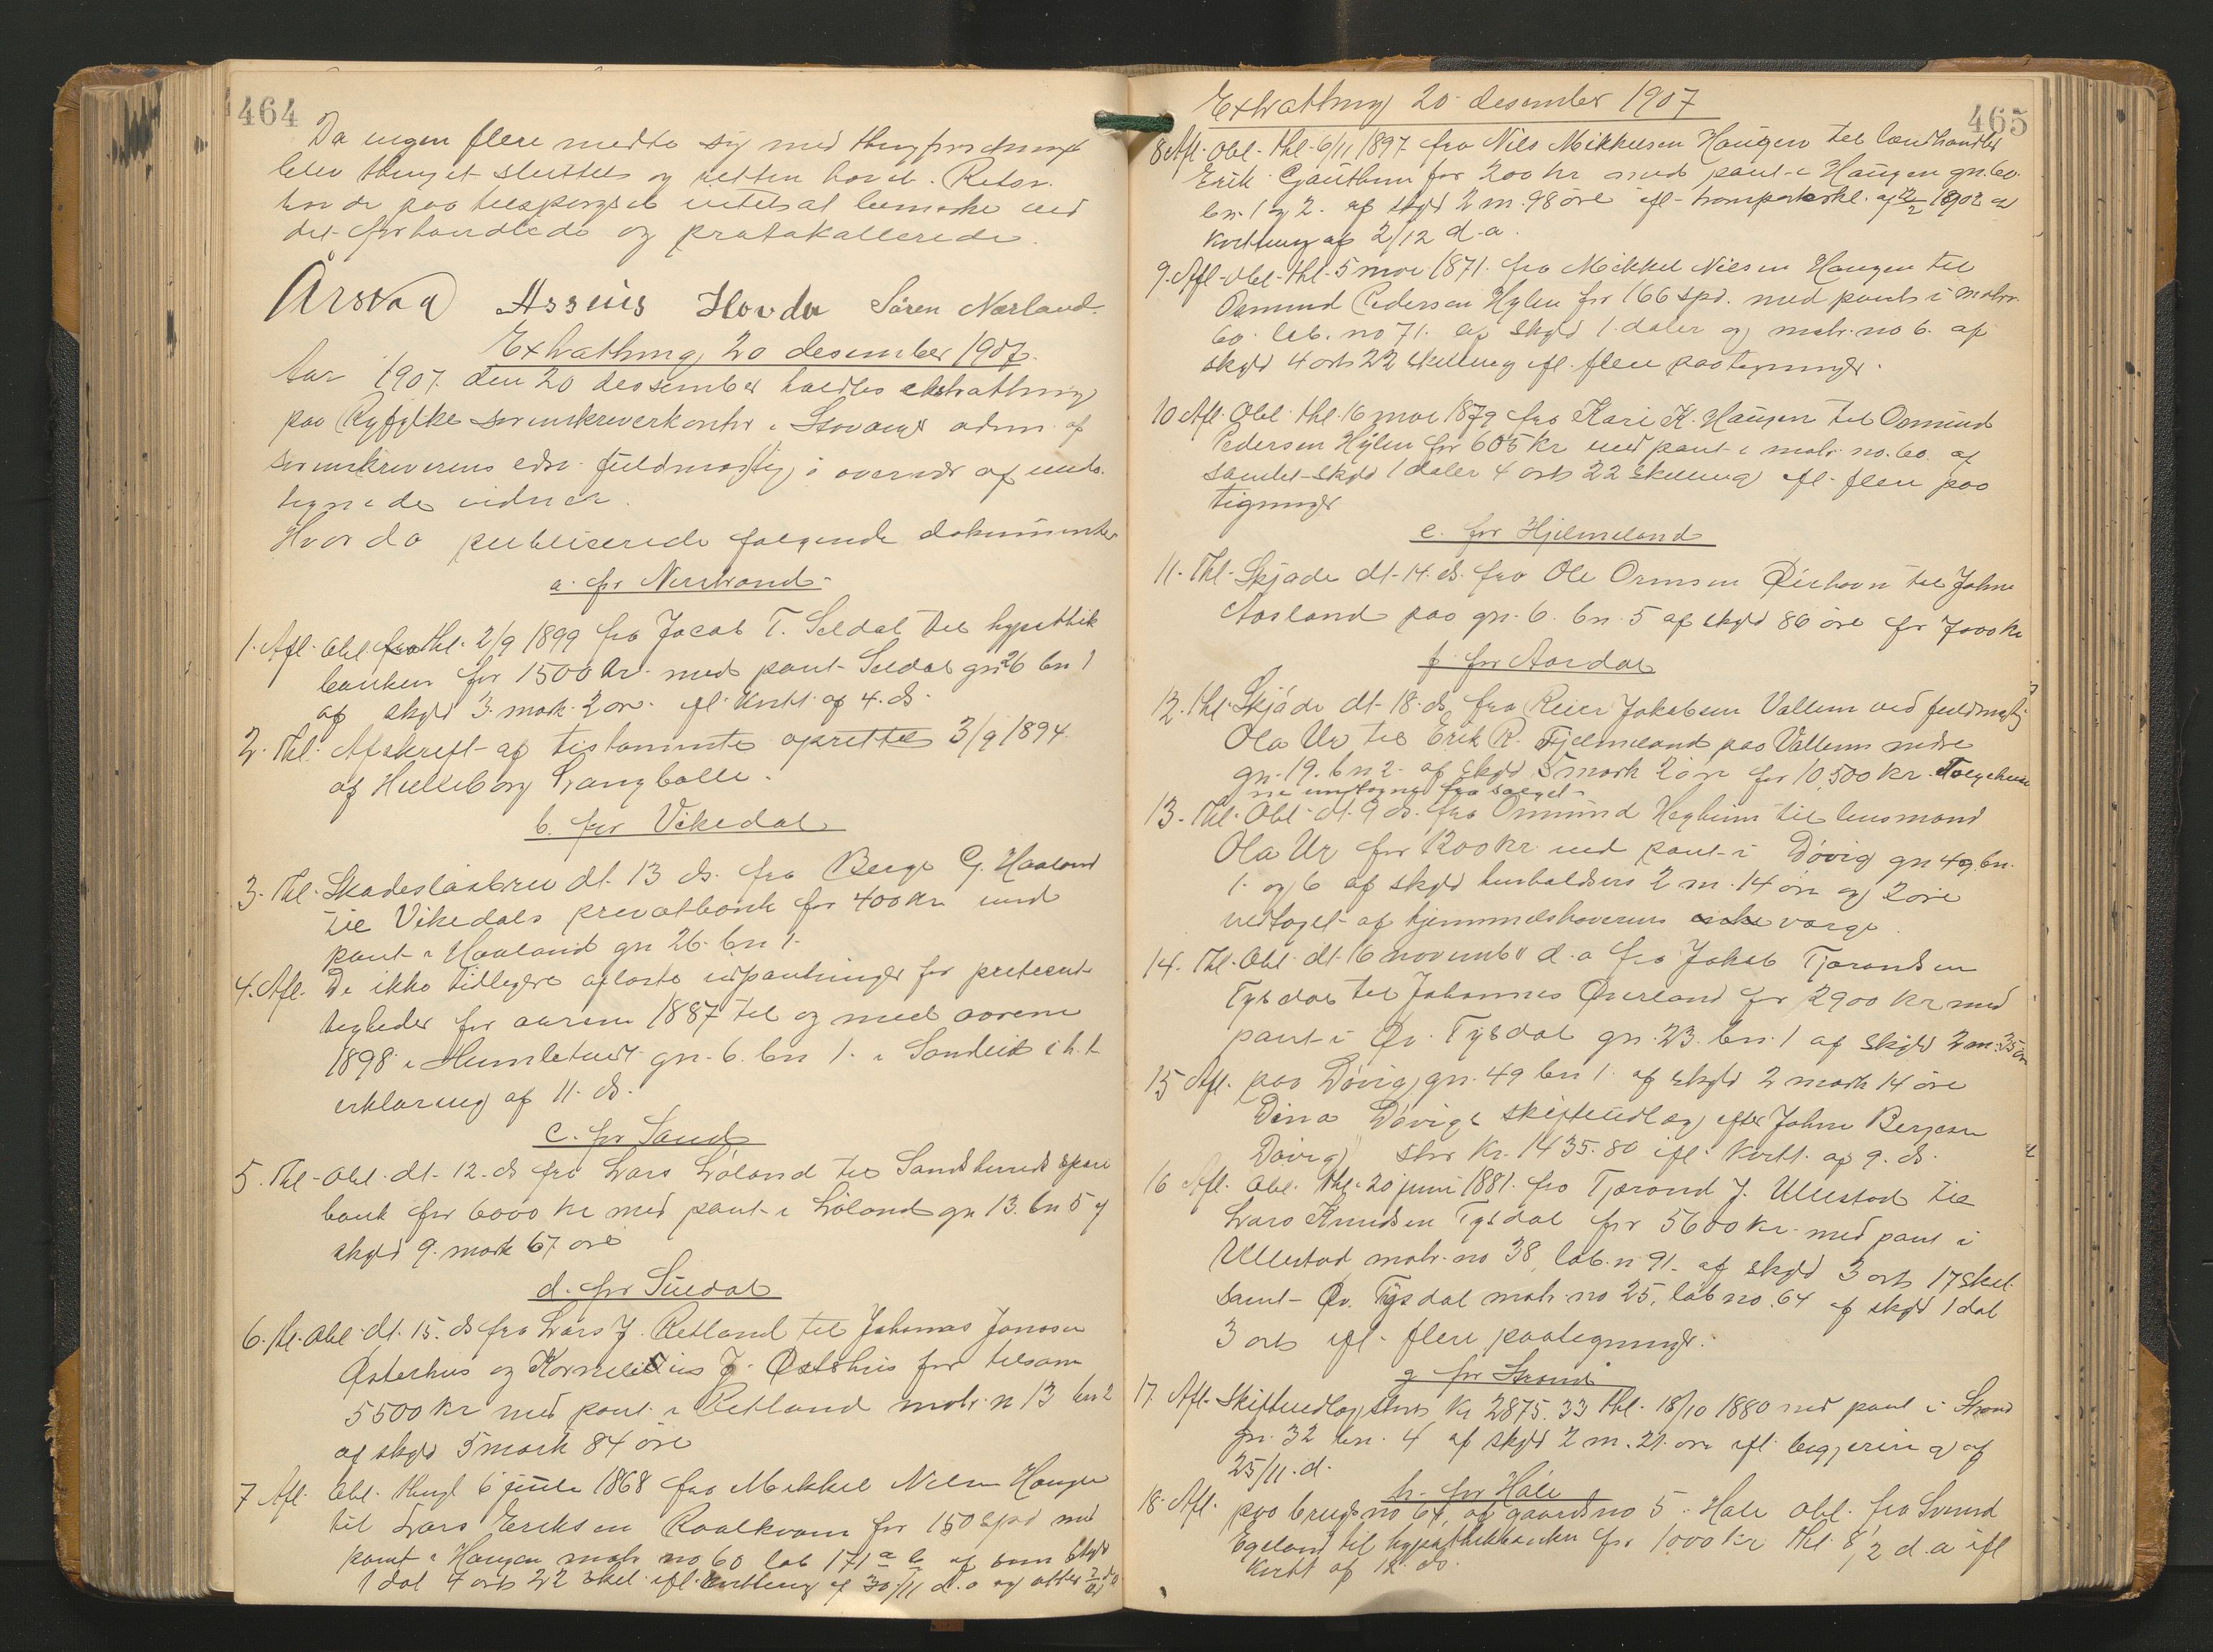 464
Da ingen flere meldte sig med thingforretninger
blev thinget sluttet og retten hævet. Retsv.
havde paa tilspørgsel intet at bemærke ved
det forhandlede og protokollerede.
Årsvåg Asseus Hovda Sören Nærland
Extrathing 20 desember 1907.
Aar 1907 den 20 desember holdtes ekstrathing
paa Ryfylke sorenskriverkontor i Stavanger adm. af
sorenskriverens edsv. fuldmægtig i overvær af unde
tegnede vidner.
Hvorda publiserede følgende dokumenter
a. for Nerstrand
1. Afl. Obl. thl. 2/9 1899 fra Jacob T. Seldal til hypothek
banken for 1500 kr. med pant Seldal gn 26 bn 1
af skyld 3. mark. 2 øre. ifl. kvitt. af 4. ds.
2. Thl. Afskrift af testamente oprettet 3/9 1894
af Hilleborg Langballe.
b. for Vikedal
3. Thl. Skadesløsbrev dt. 13 ds. fra Berge G. Haaland
til Vikedals privatbank for 400 kr med
pant i Haaland gn 26. bn 1.
4. Afl. De ikke tidligere afløste udpantninger for præsent
tigheder for aarene 1887 til og med aarene
1898 i Humletvedt gn. 6. bn 1. i Sandeid i h. t.
erklæring af 11. ds.
c. for Sand
5. Thl. Obl. dt. 12. ds fra Lars Løland til Sands herreds spare
bank for 6000 kr med pant i Løland gn 13. bn 5 af
skyld 9. mark 67 øre
d. for Suldal
6. thl. Obl. dt. 15. ds fra Lars J. Retland til Johannes Jonassen
Østerhus og Kornelius J. Østerhus for tilsam
5500 kr med pant i Retland matr. n 13 bn 2
af skyld 5 mark 84 øre
7 Afl. Obl. thingl 6 juli 1868 fra Mikkel Nilsen Haugen
til Lars Eriksen Roalkvam for 150 spd med
pant i Haugen matr no 60 løb 171 a b af sam skyld
1 dal 4 ort 22 skil. ifl. kvittering af 30/11 d. a og
465
Extrathing 20 desember 1907
8 Afl. Obl. thl. 6/11 1897 fra Nils Mikkelsen Haugen til landhandler
Erik Gauthun for 200 kr med pant i Haugen gn. 60.
bn. 1 og 2. af skyld 2 m. 98 øre ifl. transporterkl. af 1902 og
kvittering af 2/12 d. a.
9. Afl. Obl. thl. 5 mai 1871. fra Mikkel Nilsen Haugen til
Osmund Pedersen Hylen for 166 spd. med pant i matr.
60. løb. no 71. af skyld 1. daler og matr. no 6. af
skyld 4 ort 22 skilling ifl. flere paategninger.
10 Afl. Obl. thl. 16 mai 1879 fra Kari K. Haugen til Osmund
Pedersen Hylen for 605 kr med pant i matr. no. 60. af
samlet skyld 1 daler 4 ort 22 skilling ifl. flere paa
tegninger
e. for Hjelmeland
11. Thl. Skjøde dt. 14. ds. fra Ole Ormsen til John
Aasland paa gn. 6. bn. 5 af skyld 86 øre for 7000 kr
f. for Aardal
12. thl. Skjøde dt. 18. ds. fra Reier Jakobsen Valheim ved fuldmægtig
Ola Ur til Erik R. Fjelmeland paa Valheim nedre
gn. 19. bn 2. af skyld 5 mark 2 øre for 10,500 kr.
undtagne fra salget
13. Thl. Obl. dt. 9 ds. fra Osmund Hegheim til lensmand
Ola Ur for 1200 kr med pant i Døvig gn 49. bn.
1. og 6 af skyld henholdsvis 2 m. 14 øre og 2 øre
vedtaget af hjemmelshaverens værge
14. Thl. Obl. dt. 16 november d. a fra Jakob Tjærandsen
Tysdal til Johannes Øverland for 2900 kr med
pant i Øv. Tysdal gn. 23. bn. 1 af skyld 2 m. 35 øre
15 Afl. paa Døvig gn. 49 bn 1. af skyld 2 mark 14 øre
Dina Døvigs skifteudlæg efter John Bergesen
Døvig stor kr. 1435.80 ifl. kvitt. af 9. ds.
16 Afl. Obl. thl. 20 juni 1881. fra Tjerand J. Ullestad til
Lars Knudsen Tysdal for 5600 kr. med pant i
Ullestad matr. no 38, løb. n 91. af skyld 3 ort 17 skil.
samt Øv. Tysdal matr. no 25, løb no. 64 af skyld 1 dal
3 ort ifl. flere paategninger.
g. for Strand
17. Afl. Skifteudlæg stort kr 2875.33 thl. 18/10 1880 med pant i Strand
gn. 32 bn. 4 af skyld 2 m. 21. øre ifl. begjæring af
25/11. d.
h. for Hole
18. Afl. paa brugsno 64, af gaardsno 5. Hole obl. fra Svend
Egeland til hypothekbanken for 1000 kr thl. 8/2 d. a ifl
kvitt af 12. ds.